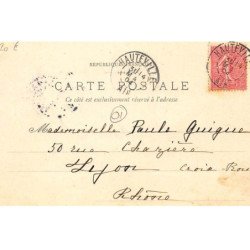 20 €
RÉPUBLIQUE
HAUTEVILLE
HAUTEVILLE
CARTE POSTALE
Ce côté est exclusivement réservé à l'adresse
Mademoiselle Paule Guigue
50 rue Chazière
Lyon Croix Rou
Rhône